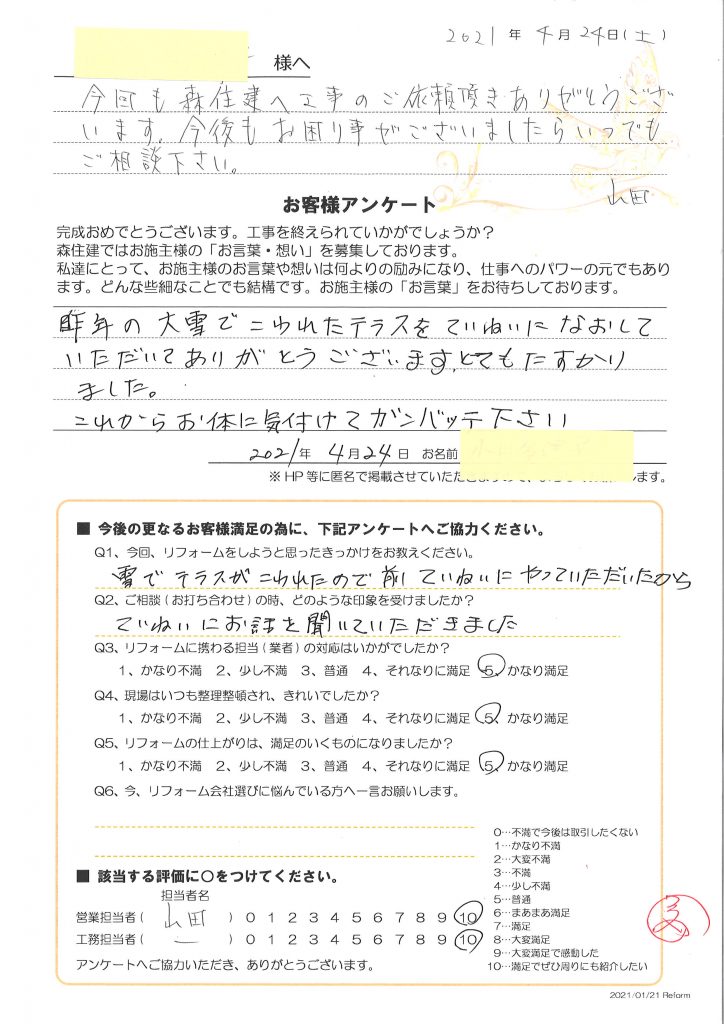 2021年 4月 24日(土)
様へ
今回も森住建へ工事のご依頼頂きありがとうござ
います。今後もお困り事がございましたらいつでも
ご相談下さい。
山田
お客様アンケート
完成おめでとうございます。工事を終えられていかがでしょうか？
森住建ではお施主様の「お言葉・想い」を募集しております。
私達にとって、お施主様のお言葉や想いは何よりの励みになり、仕事へのパワーの元でもあり
ます。どんな些細なことでも結構です。お施主様の「お言葉」をお待ちしております。
昨年の大雪でこわれたテラスをていねいになおして
いただいてありがとうございます。とてもたすかり
ました。
これからお体に気付けてガンバッテ下さい
2021年 4月24日 お名前
※HP等に匿名で掲載させていただ
します。
■ 今後の更なるお客様満足の為に、下記アンケートへご協力ください。
Q1、今回、リフォームをしようと思ったきっかけをお教えください。
雪でテラスがこわれたので前ていねいにやっていただいたから
Q2、ご相談（お打ち合わせ）の時、どのような印象を受けましたか？
ていねいにお話を聞いていただきました
Q3、リフォームに携わる担当（業者）の対応はいかがでしたか？
1、かなり不満 2、少し不満 3、普通 4、それなりに満足 5、かなり満足
Q4、現場はいつも整理整頓され、きれいでしたか？
1、かなり不満 2、少し不満 3、普通 4、それなりに満足 5、かなり満足
Q5、リフォームの仕上がりは、満足のいくものになりましたか？
1、かなり不満 2、少し不満 3、普通 4、それなりに満足 5、かなり満足
Q6、今、リフォーム会社選びに悩んでいる方へ一言お願いします。
■ 該当する評価に○をつけてください。
担当者名
営業担当者（ 山田 ）0 1 2 3 4 5 6 7 8 9 10
工務担当者（ ー ）0 1 2 3 4 5 6 7 8 9 10
アンケートへご協力いただき、ありがとうございます。
0…不満で今後は取引したくない
1…かなり不満
2…大変不満
3…不満
4…少し不満
5…普通
6…まあまあ満足
7…満足
8…大変満足
9…大変満足で感動した
10…満足でぜひ周りにも紹介したい
2021/01/21 Reform